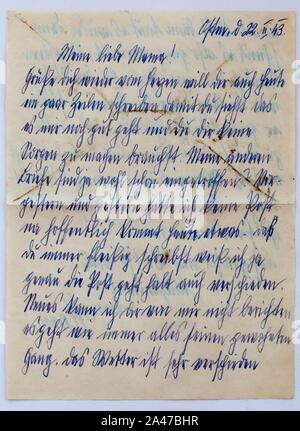 Osten, d. 22. II. 43.
Meine liebe Mama!
Grüße dich wieder von Herzen will dir auch heute
ein paar Zeilen schreiben damit du siehst das
es mir noch gut geht und du dir keine
Sorgen zu machen brauchst. Meine anderen
Briefe sind ja wohl schon eingetroffen. Vor
gestern und gestern keine Post
na hoffentlich kommt heute etwas. daß
du immer fleißig schreibst weiß ich ja
genau die Post geht halt auch verschieden.
Neues kann ich dir von mir nicht berichten
es geht wie immer alles seinen gewohnten
Gang. das Wetter ist sehr verschieden
alamy
Image ID: 2A47BHR
www.alamy.com